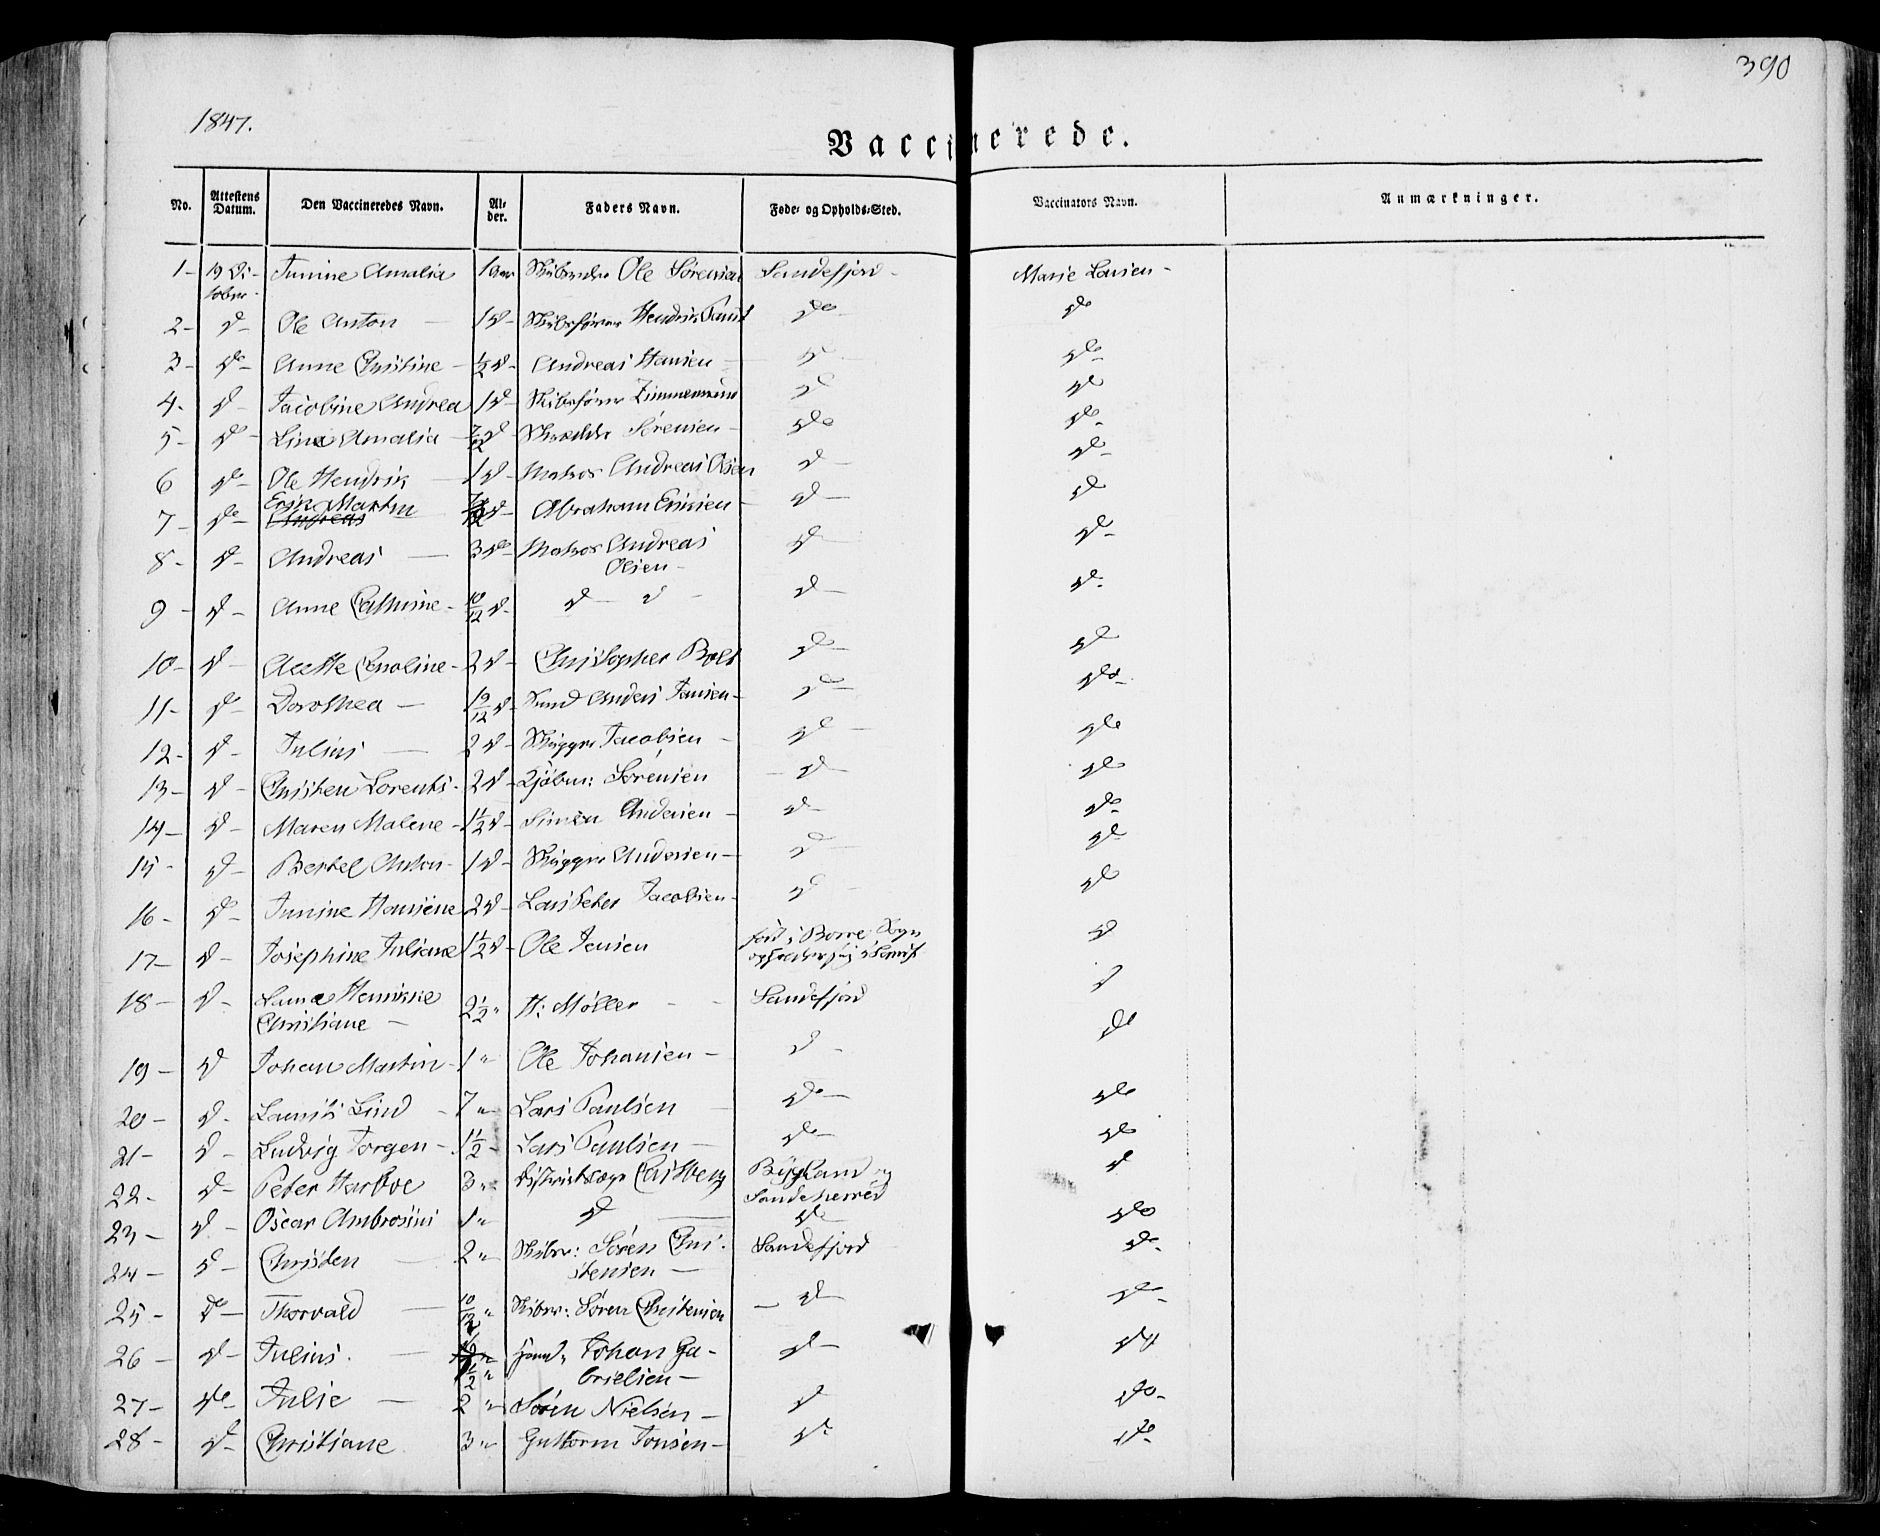 390
1847.
Vaccinerede.
No. Attestens Datum. Den Vaccineredes Navn. Alder. Faders Navn. Føde- og Opholds-Sted. Vaccinators Navn. Anmærkninger.
1 - 19 October - Junine Amalia 1 Aar Ole Sørensen Sandefjord - Marie Larsen -
2 - do - Ole Anton - 1 do - Skibsfører Hendrik do do
3 - do - Anne Christine - 1/2 do - Andreas Hansen - do do -
4 - do - Jacobine Andrea 1 do - Skibsfører Zimmermann do do
5 - do - Lina Amalia - 7/12 do - Skrædder Sørensen - do do -
6 do - Ole Hendrik - 1 do Matros Andreas Olsen do - do -
7 - do - Erik Martin do - Abraham Eriksen - do - do
8 - do - Andreas - 3 do - Matros Andreas Olsen - do - do -
9 - do - Anne Cathrine - 10/12 do - do - do - do - do -
10 - do - Caroline - 2 do - Christopher do - do
11 - do - Dorothea - do - Anders Jansen - do - do -
12 - do - Julius - 2 do - Jacobsen - do - do
13 - do - Christen Lorents - 2 do - Kjøbm: Sørensen - do - do
14 - do - Maren Malene - 1 1/2 do - Simen Andersen - do - do -
15 - do - Bertel Anton - 1 do - Andersen - do do
16 - do - Junine Hansine 2 do - Lars Peter Jacobsen - do - do
17 - do - Josephine Juliane 1 1/2 do - Ole Jensen født i Borre Sogn do
18 - do - Henrikke Christiane - 2 1/2 " H: Møller - - Sandefjord do
19 - do Johan Martin - 1 " Ole Johansen - do - do
20 - do - Laurits Lind - 7 " Lars Paulsen - do - do
21 - do - Ludvig Jørgen - 1 1/2 - Lars Paulsen - do - do
22 - do - Peter Harboe 3 " Distriktslæge Bygland og Sandeherred do
23 - do - Oscar Ambrosius 1 " do - do do
24 - do - Christen - 2 " Skibsr: Søren Christensen - Sandefjord do -
25 - do - Thorvald - 10/12 " Skibsr: Søren Christensen - do - do -
26 - do - Julius. - Johan Gabrielsen - do - do
27 - do - Julie - 2 " Søren Nielsen - do do -
28 - do - Christiane 3 " Guttorm Jonsen - do do -